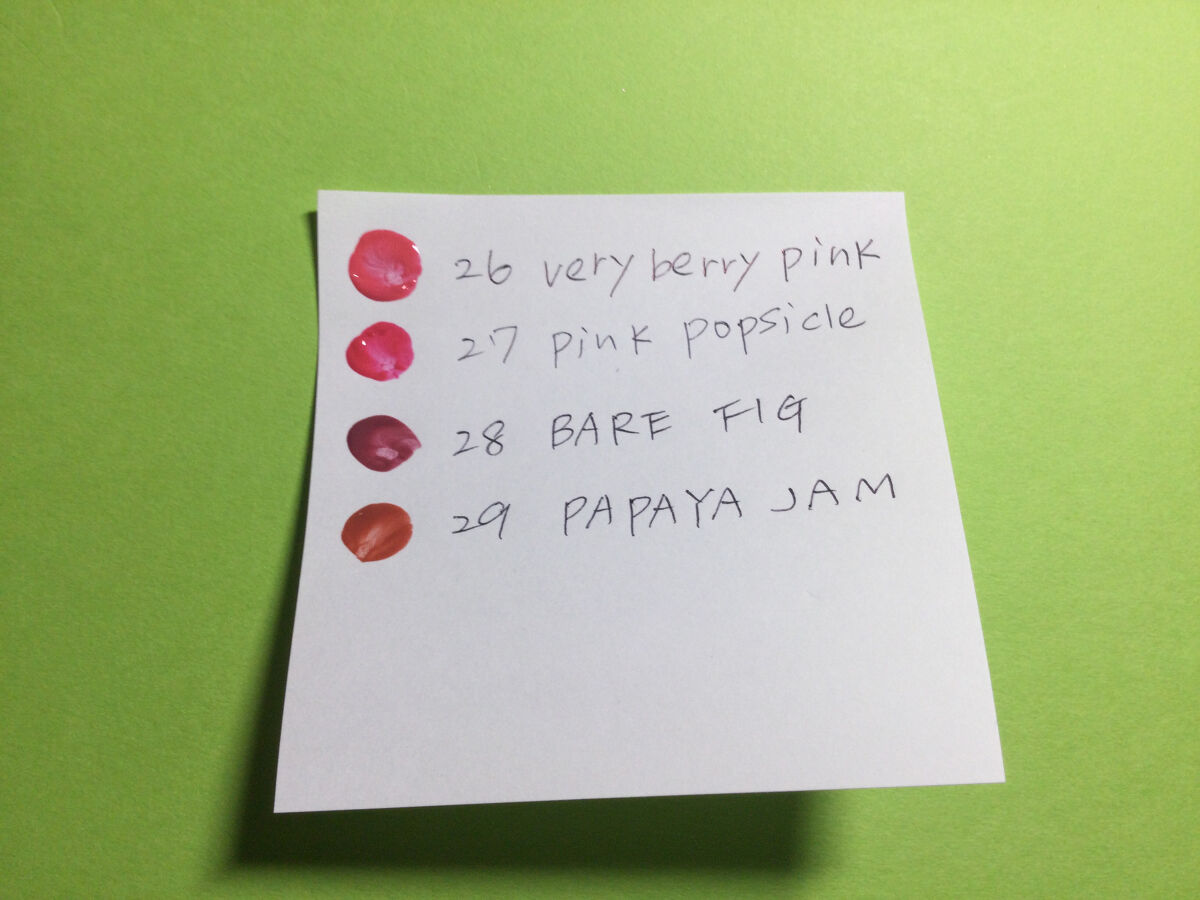 26 very berry pink
27 pink popsicle
28 BARE FIG
29 PAPAYA JAM